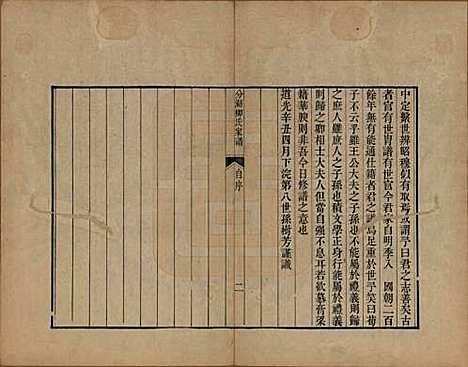 中定繫世辨昭穆似有取焉或謂予曰君之志善矣古
者官有世胄譜有世官今君家自明季入　國朝二百
餘年無有能通仕籍者君之譜烏足重於世乎笑曰荀
子不云乎雖王公大夫之子孫也不能屬於禮義
之庶人雖庶人之子孫也積文學正身行能屬於禮義
則歸之卿相士大夫人但當自強不息若欲慕膏粱
籍華腴則非吾今日修譜之意也
道光辛丑四月下浣第八世孫樹芳謹識
分湖柳氏家譜
自序
二